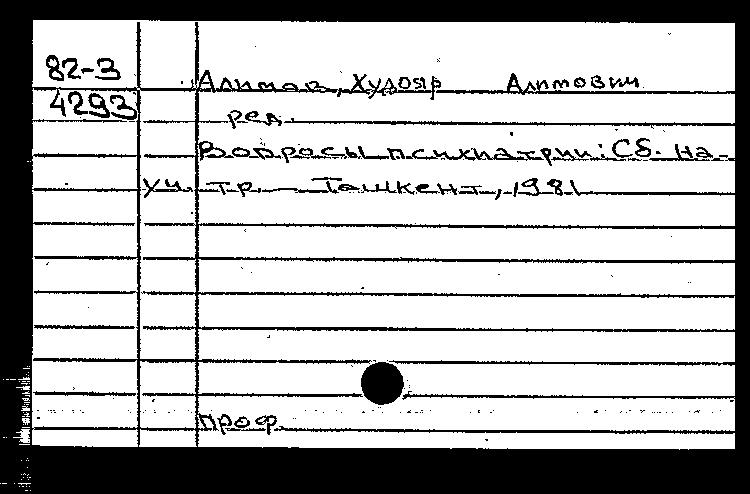 82-3
Алимов, Худояр Алимович
4293
ред.
Вопросы психиатрии: Сб. на-
уч. тр. — Ташкент, 1981
проф.